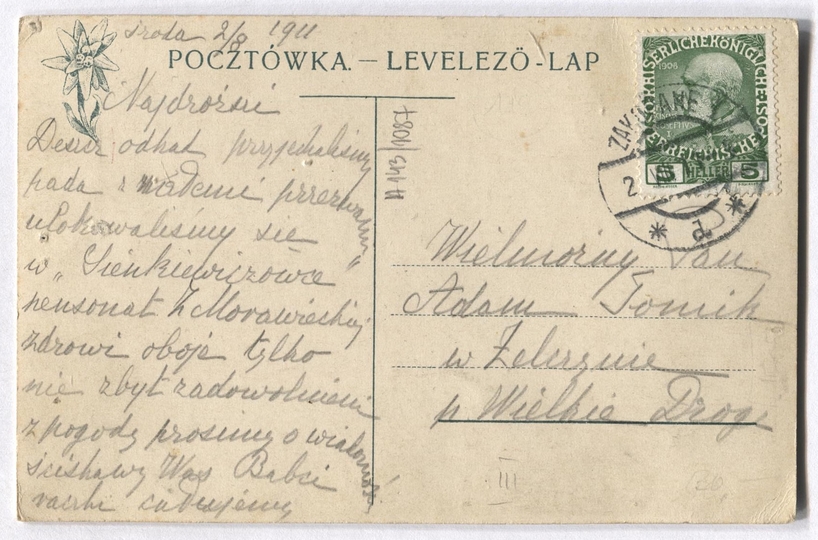 środa 2/8 1911
POCZTÓWKA. — LEVELEZŐ-LAP
Najdrożsi
Deszcz odkąd przyjechaliśmy
pada z
ulokowaliśmy się
w „Sienkiewiczówce"
pensonat Z Morawieckiej
zdrowi oboje tylko
nie zbyt zadowolnieni
z pogody prosimy o wiadomość
ściskamy Was Babci
rączki całujemy
A 143/1087
KAISERLICHE KÖNIGLICHE
1908
5 HELLER 5
ZAKOPANE
2
d
Wielmożny Pan
Adam Tomik
w Zelczynie
p Wielkie Drogi
III